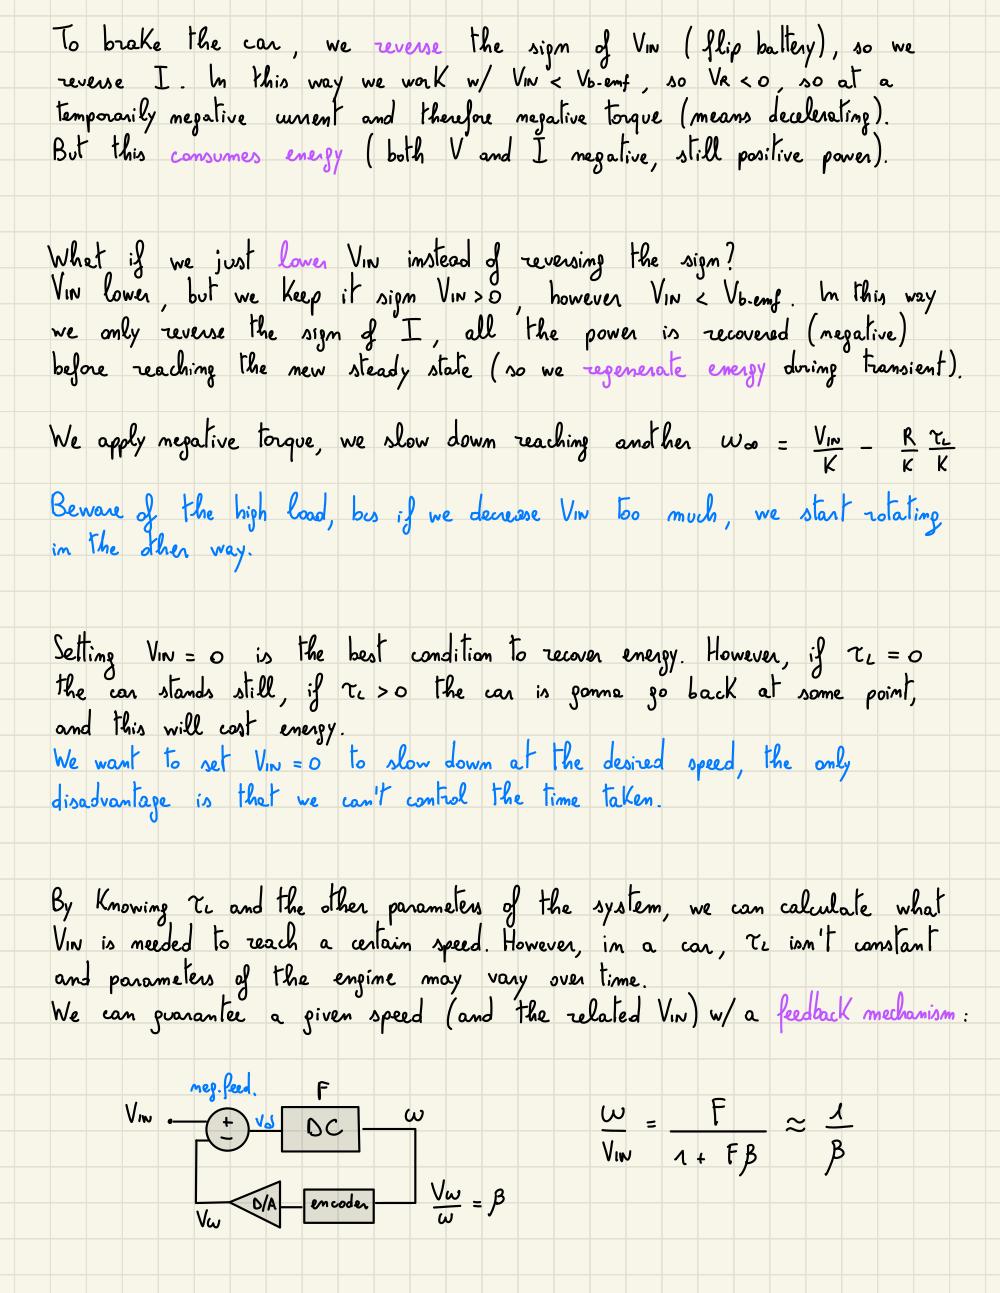 To brake the car, we reverse the sign of VIN (flip battery), so we
reverse I. In this way we work w/ VIN < Vb-emf, so VR < 0, so at a
temporarily negative current and therefore negative torque (means decelerating).
But this consumes energy (both V and I negative, still positive power).
What if we just lower VIN instead of reversing the sign?
VIN lower, but we keep it sign VIN > 0, however VIN < Vb-emf. In this way
we only reverse the sign of I, all the power is recovered (negative)
before reaching the new steady state (so we regenerate energy during transient).
We apply negative torque, we slow down reaching another ω∞ = VIN/K - R/K τL/K
Beware of the high load, bcs if we decrease VIN too much, we start rotating
in the other way.
Setting VIN = 0 is the best condition to recover energy. However, if τL = 0
the car stands still, if τL > 0 the car is gonna go back at some point,
and this will cost energy.
We want to set VIN = 0 to slow down at the desired speed, the only
disadvantage is that we can't control the time taken.
By knowing τL and the other parameters of the system, we can calculate what
VIN is needed to reach a certain speed. However, in a car, τL isn't constant
and parameters of the engine may vary over time.
We can guarantee a given speed (and the related VIN) w/ a feedback mechanism:
neg.feed. F
VIN + - Vd DC ω
ω/VIN = F/(1 + Fβ) ≈ 1/β
Vω D/A encoder Vω/ω = β